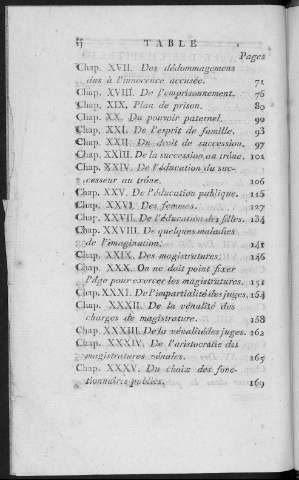 TABLE
Pages
Chap. XVII. Des dédommagemens
dus à l'innocence accusée. 71
Chap. XVIII. De l'emprisonnement. 76
Chap. XIX. Plan de prison. 80
Chap. XX. Du pouvoir paternel. 90
Chap. XXI. De l'esprit de famille. 93
Chap. XXII. Du droit de succession. 97
Chap. XXIII. De la succession au trône. 101
Chap. XXIV. De l'éducation du suc-
cesseur au trône. 106
Chap. XXV. De l'éducation publique. 115
Chap. XXVI. Des femmes. 127
Chap. XXVII. De l'éducation des filles. 134
Chap. XXVIII. De quelques maladies
de l'imagination. 141
Chap. XXIX. Des magistratures. 146
Chap. XXX. On ne doit point fixer
l'âge pour exercer les magistratures. 151
Chap. XXXI. De l'impartialité des juges. 154
Chap. XXXII. De la vénalité des
charges de magistrature. 158
Chap. XXXIII. De la vénalité des juges. 162
Chap. XXXIV. De l'aristocratie des
magistratures vénales. 165
Chap. XXXV. Du choix des fonc-
tionnaires publics. 169